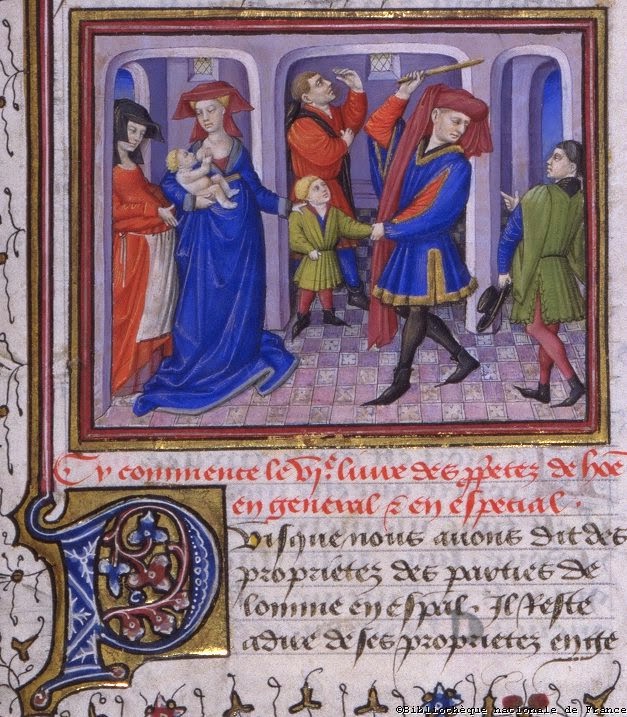 Cy commence le VIe liure des ppetez de hoe
en general & en especial .
Puisque nous auons dit des
proprietez des parties de
lomme en espal . Il Reste
a dire de ses proprietez en ge
©Bibliothèque nationale de France